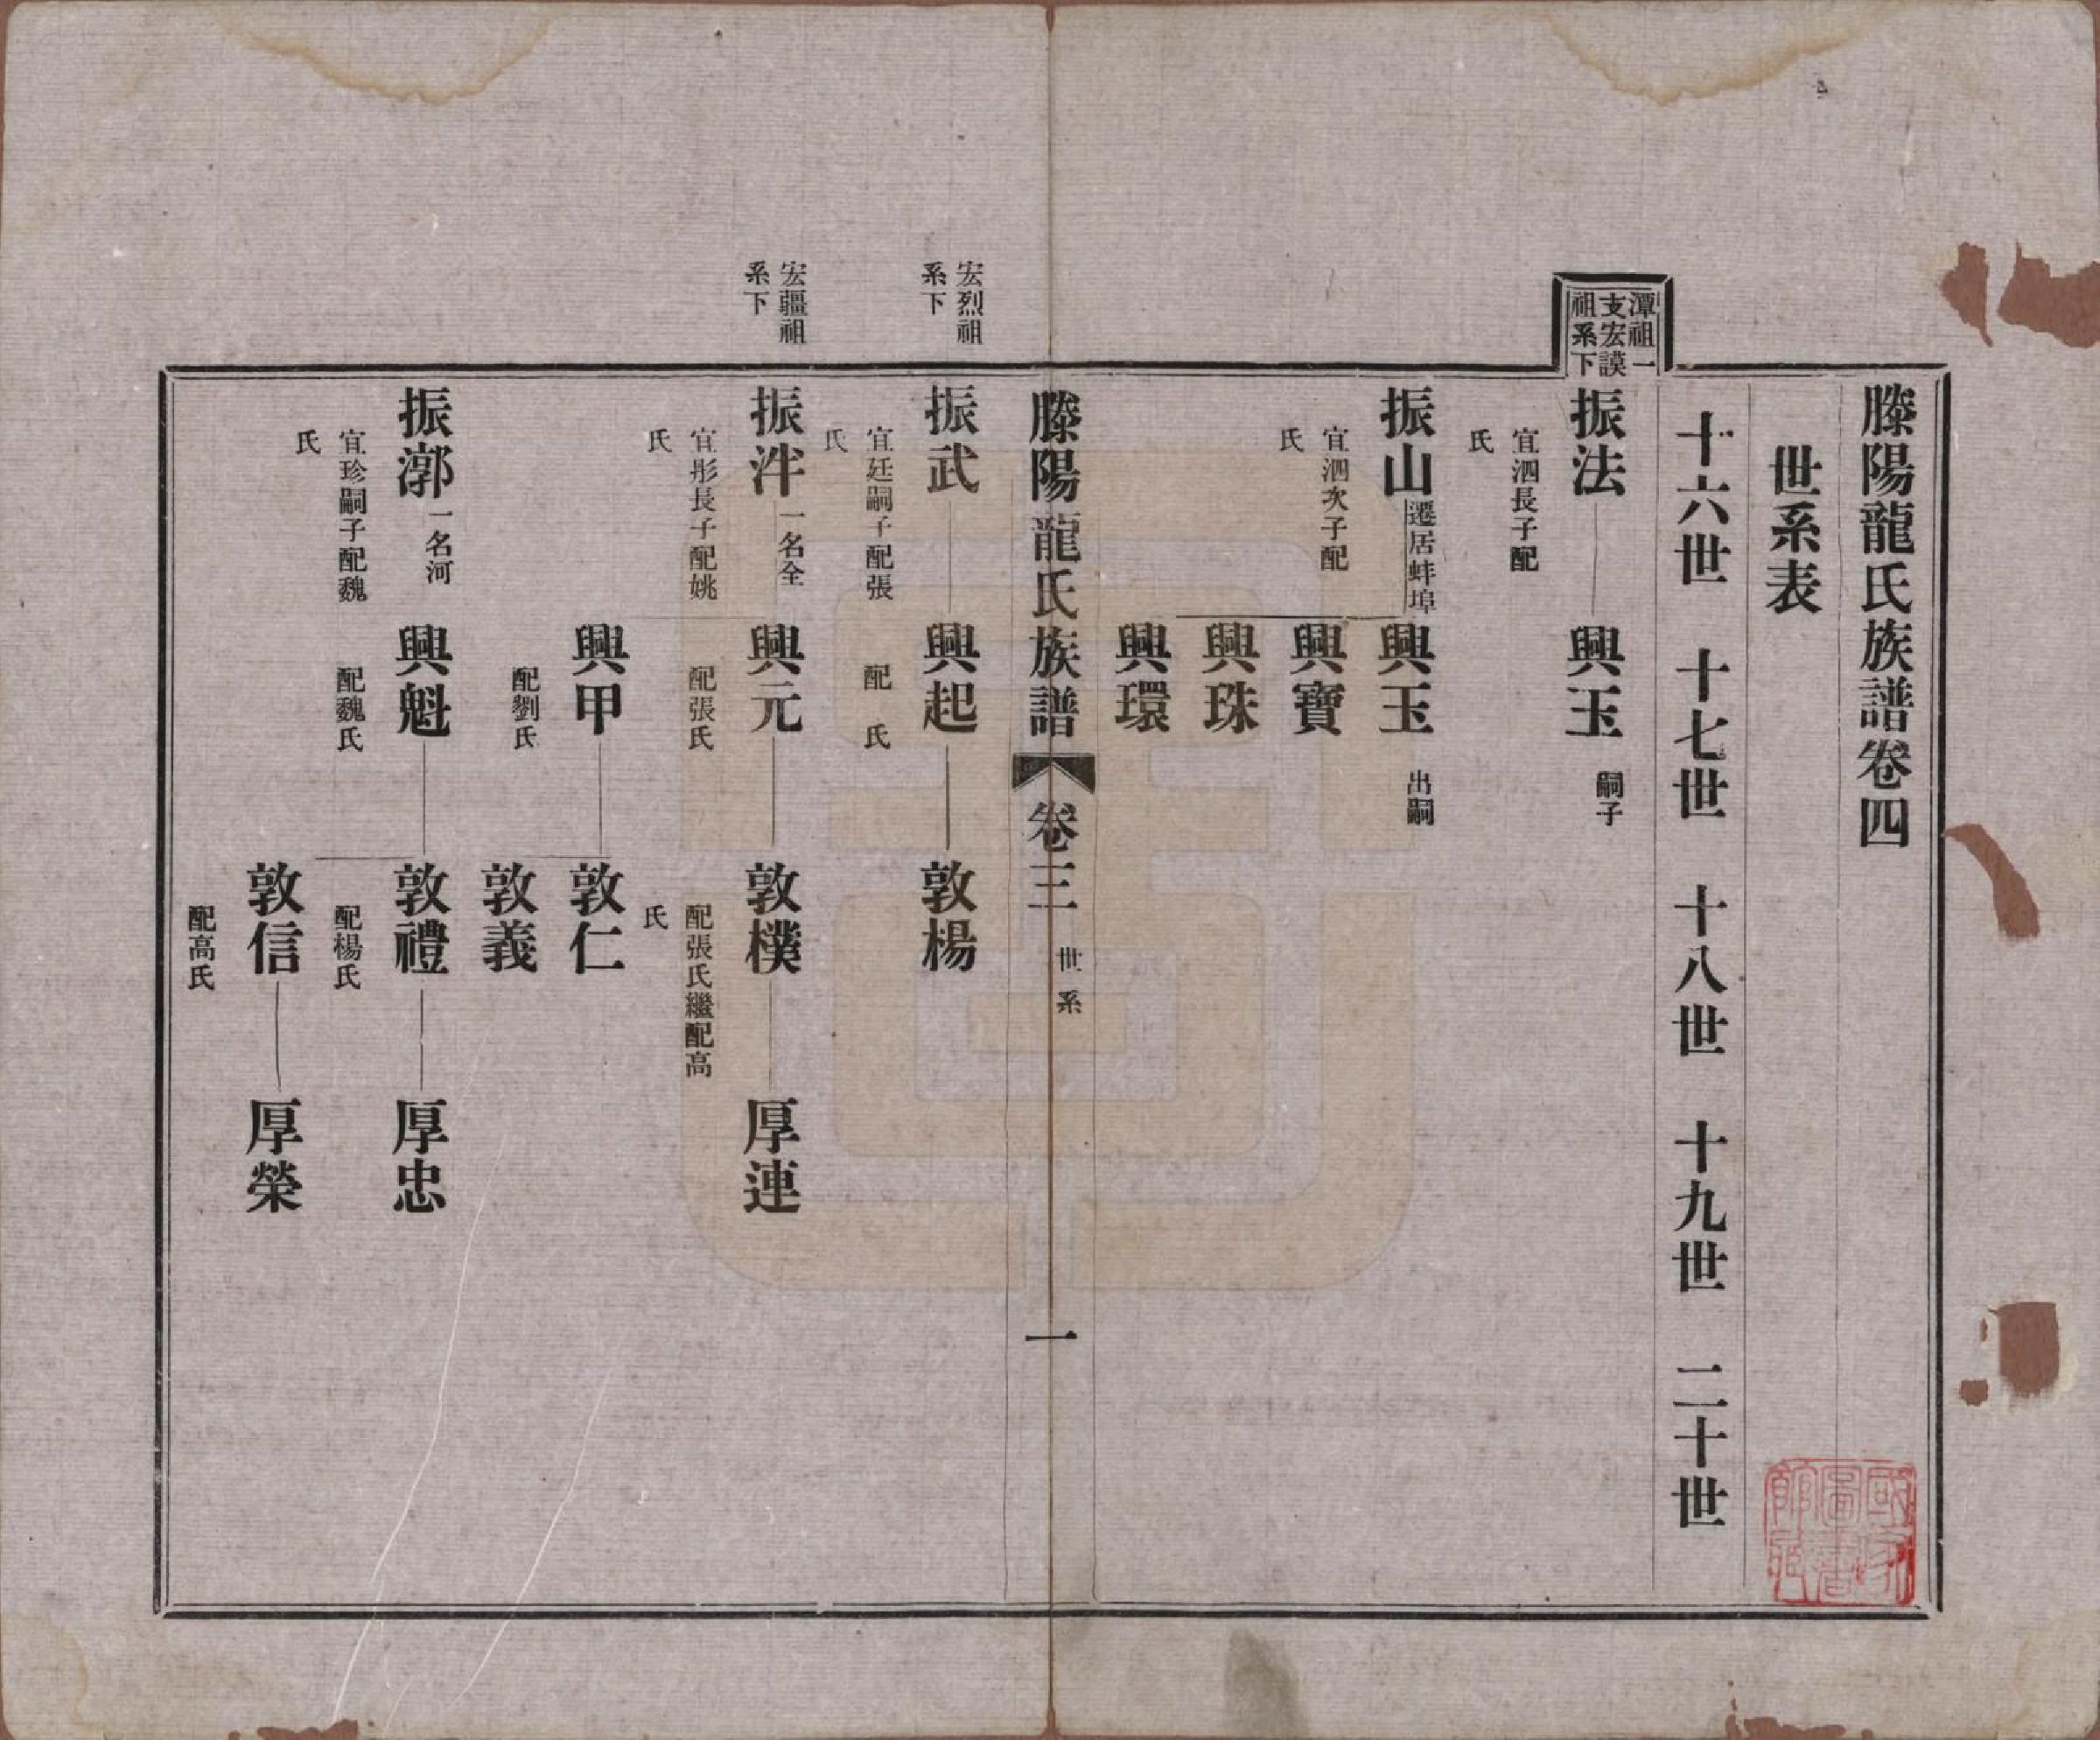 滕陽龍氏族譜卷四
世系表
十六世 十七世 十八世 十九世 二十世
潭祖一
支宏謨
祖系下
振法 興玉 嗣子
宜泗長子配
氏
振山 遷居蚌埠 興玉 出嗣
宜泗次子配 興寶
氏
興珠
興環
滕陽龍氏族譜 卷三 世系 一
宏烈祖
系下
振武 興起 敦楊
宜廷嗣子配張 配 氏
氏
宏疆祖
系下
振泮 一名全 興元 敦樸 厚連
宜彤長子配姚 配張氏 配張氏繼配高
氏 氏
興甲 敦仁
配劉氏 敦義
振漷 一名河 興魁 敦禮 厚忠
宜珍嗣子配魏 配魏氏 配楊氏
氏
敦信 厚榮
配高氏
國家
圖書
館藏